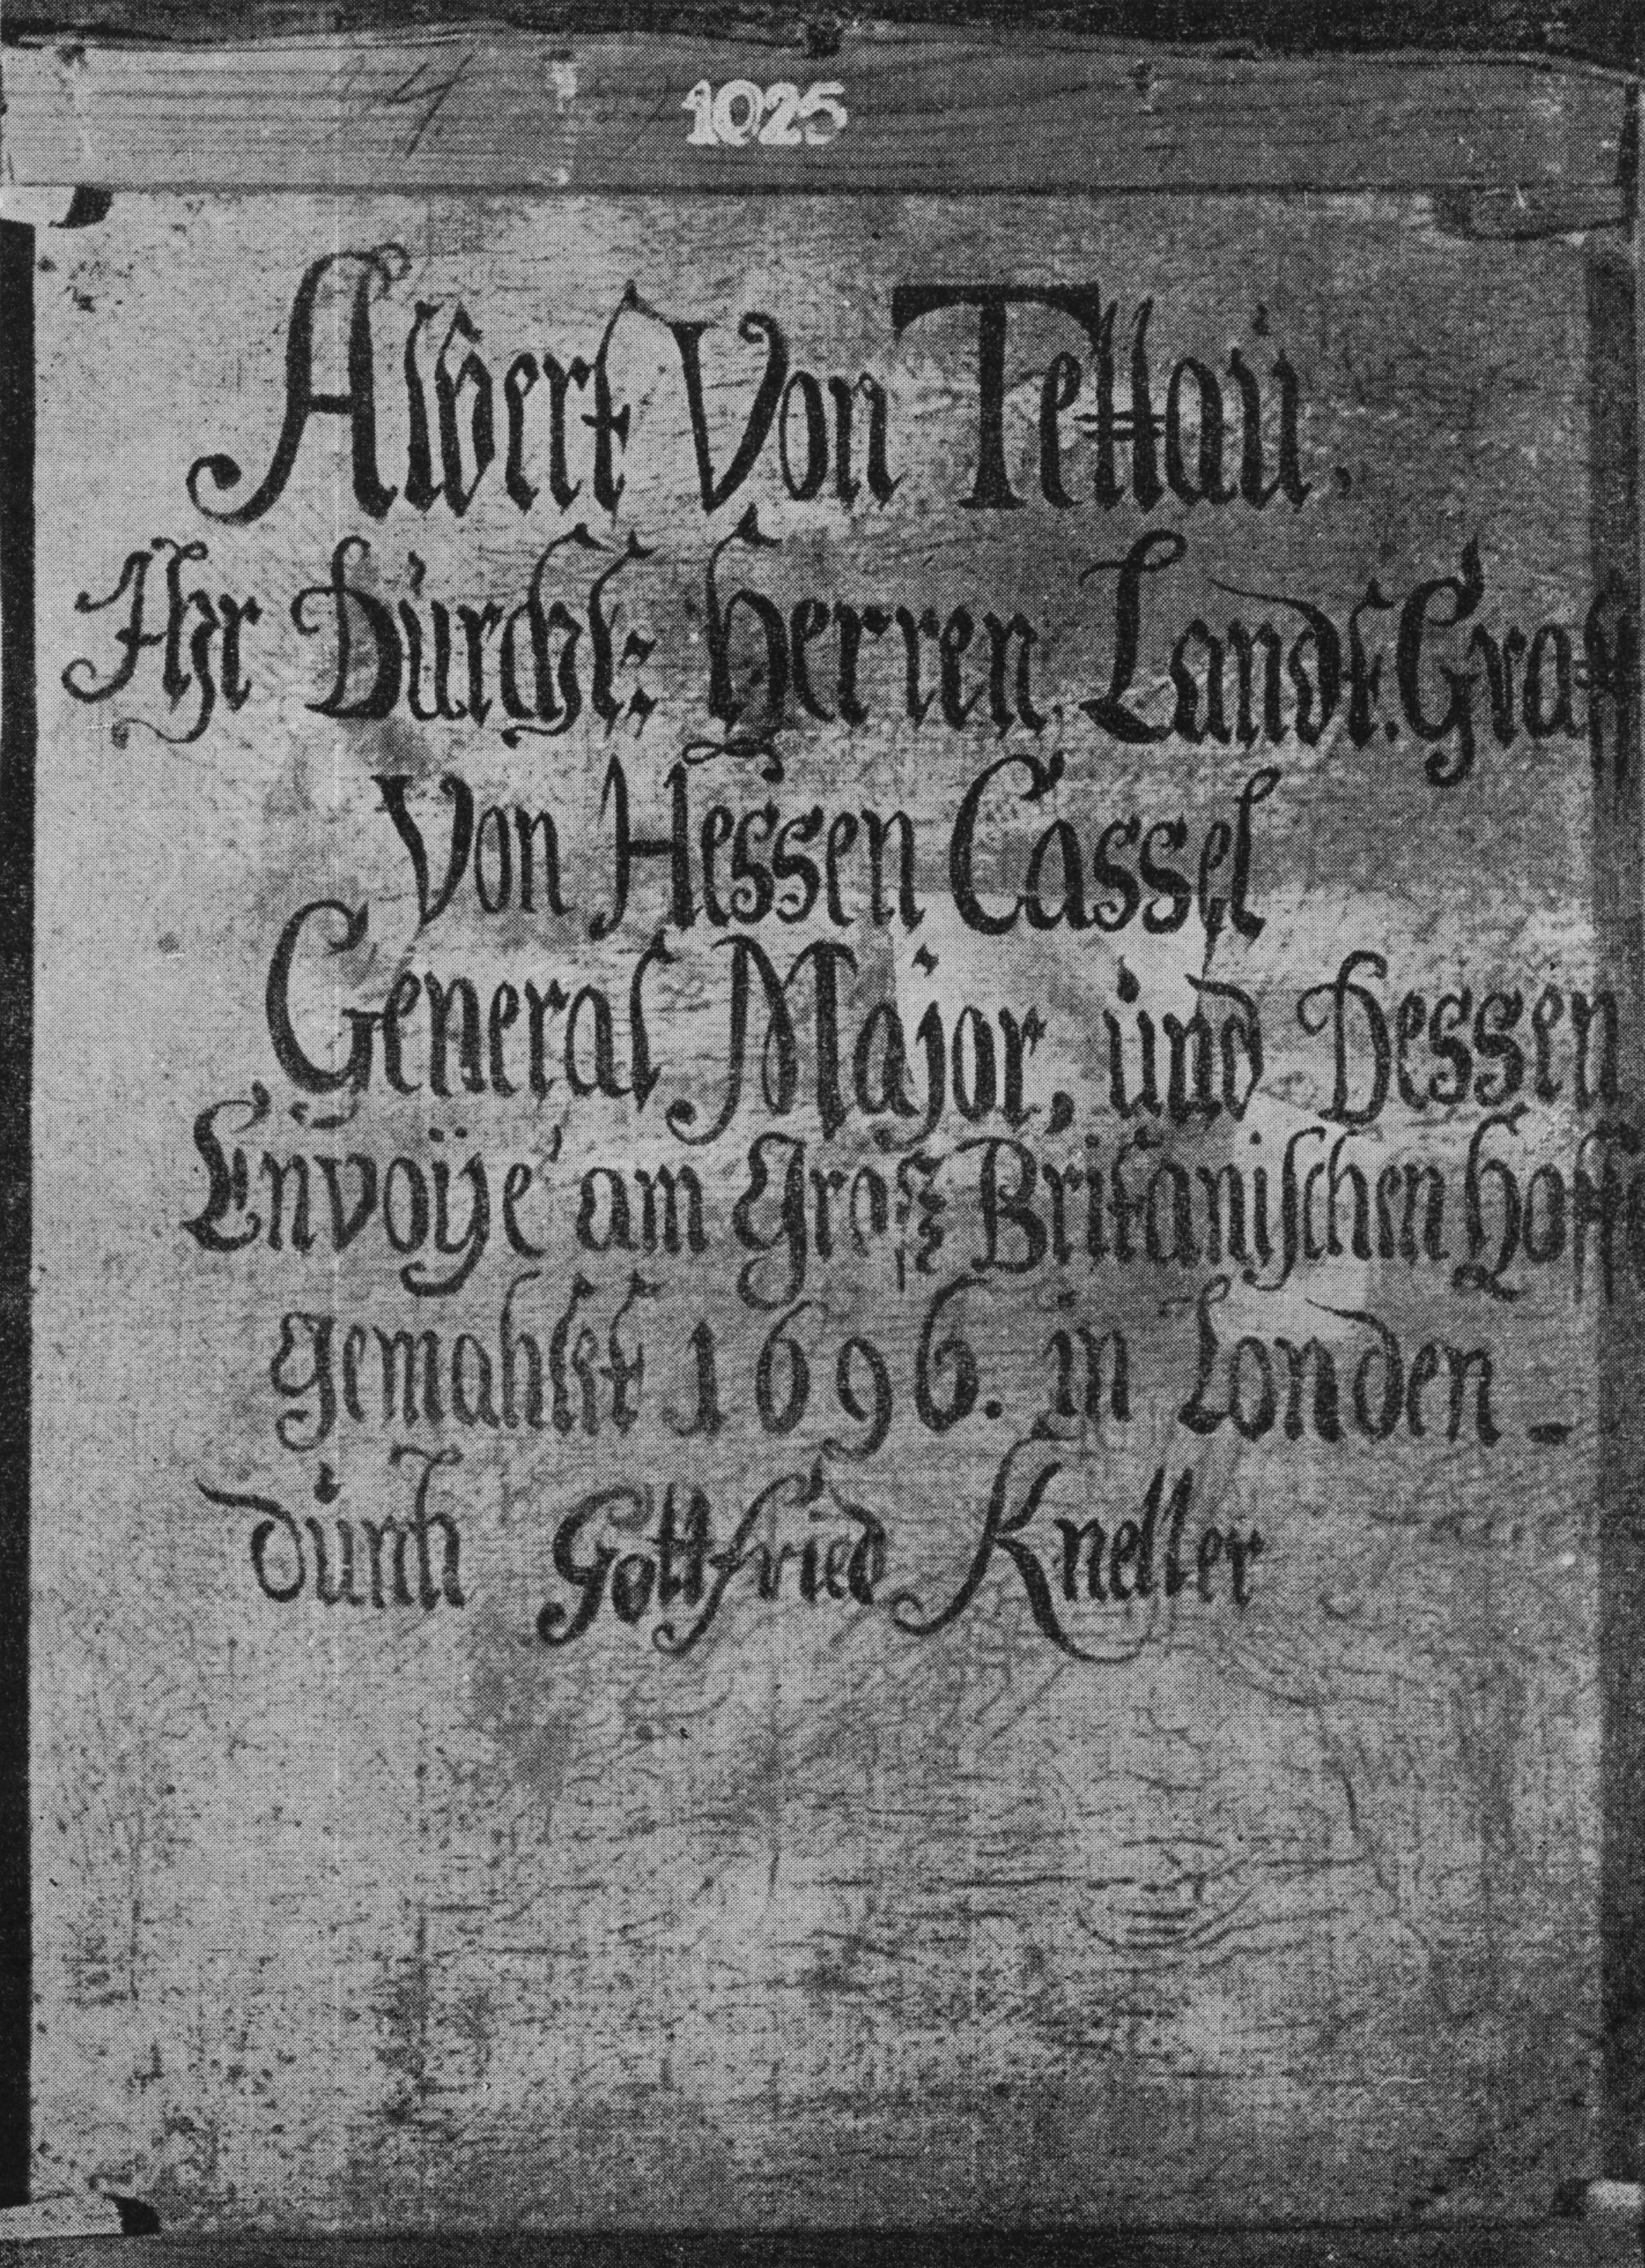 1025
Albert Von Tettau,
Ihr Dürchl: Herren, Landt. Graff
Von Hessen Cassel
General Major, und Dessen
Envoÿé am Groß Britanischen Hoff
gemahlet 1696. in Londen -
durch Gottfried Kneller